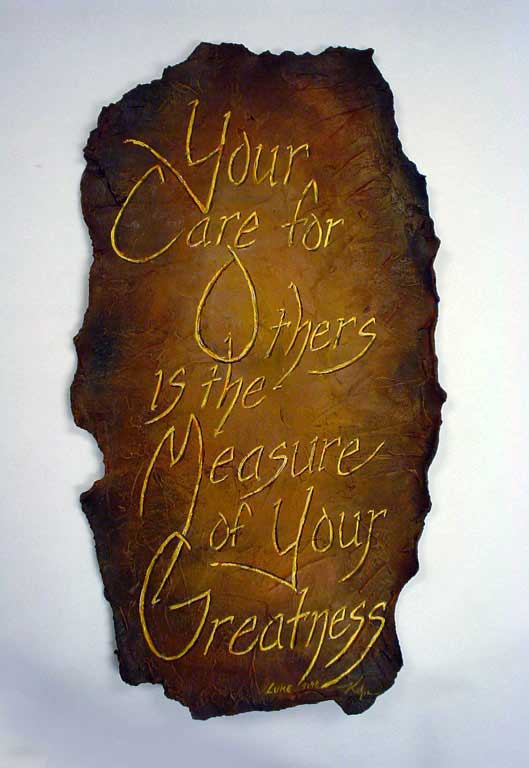 Your
Care for
Others
is the
Measure
of Your
Greatness
LUKE 9:48